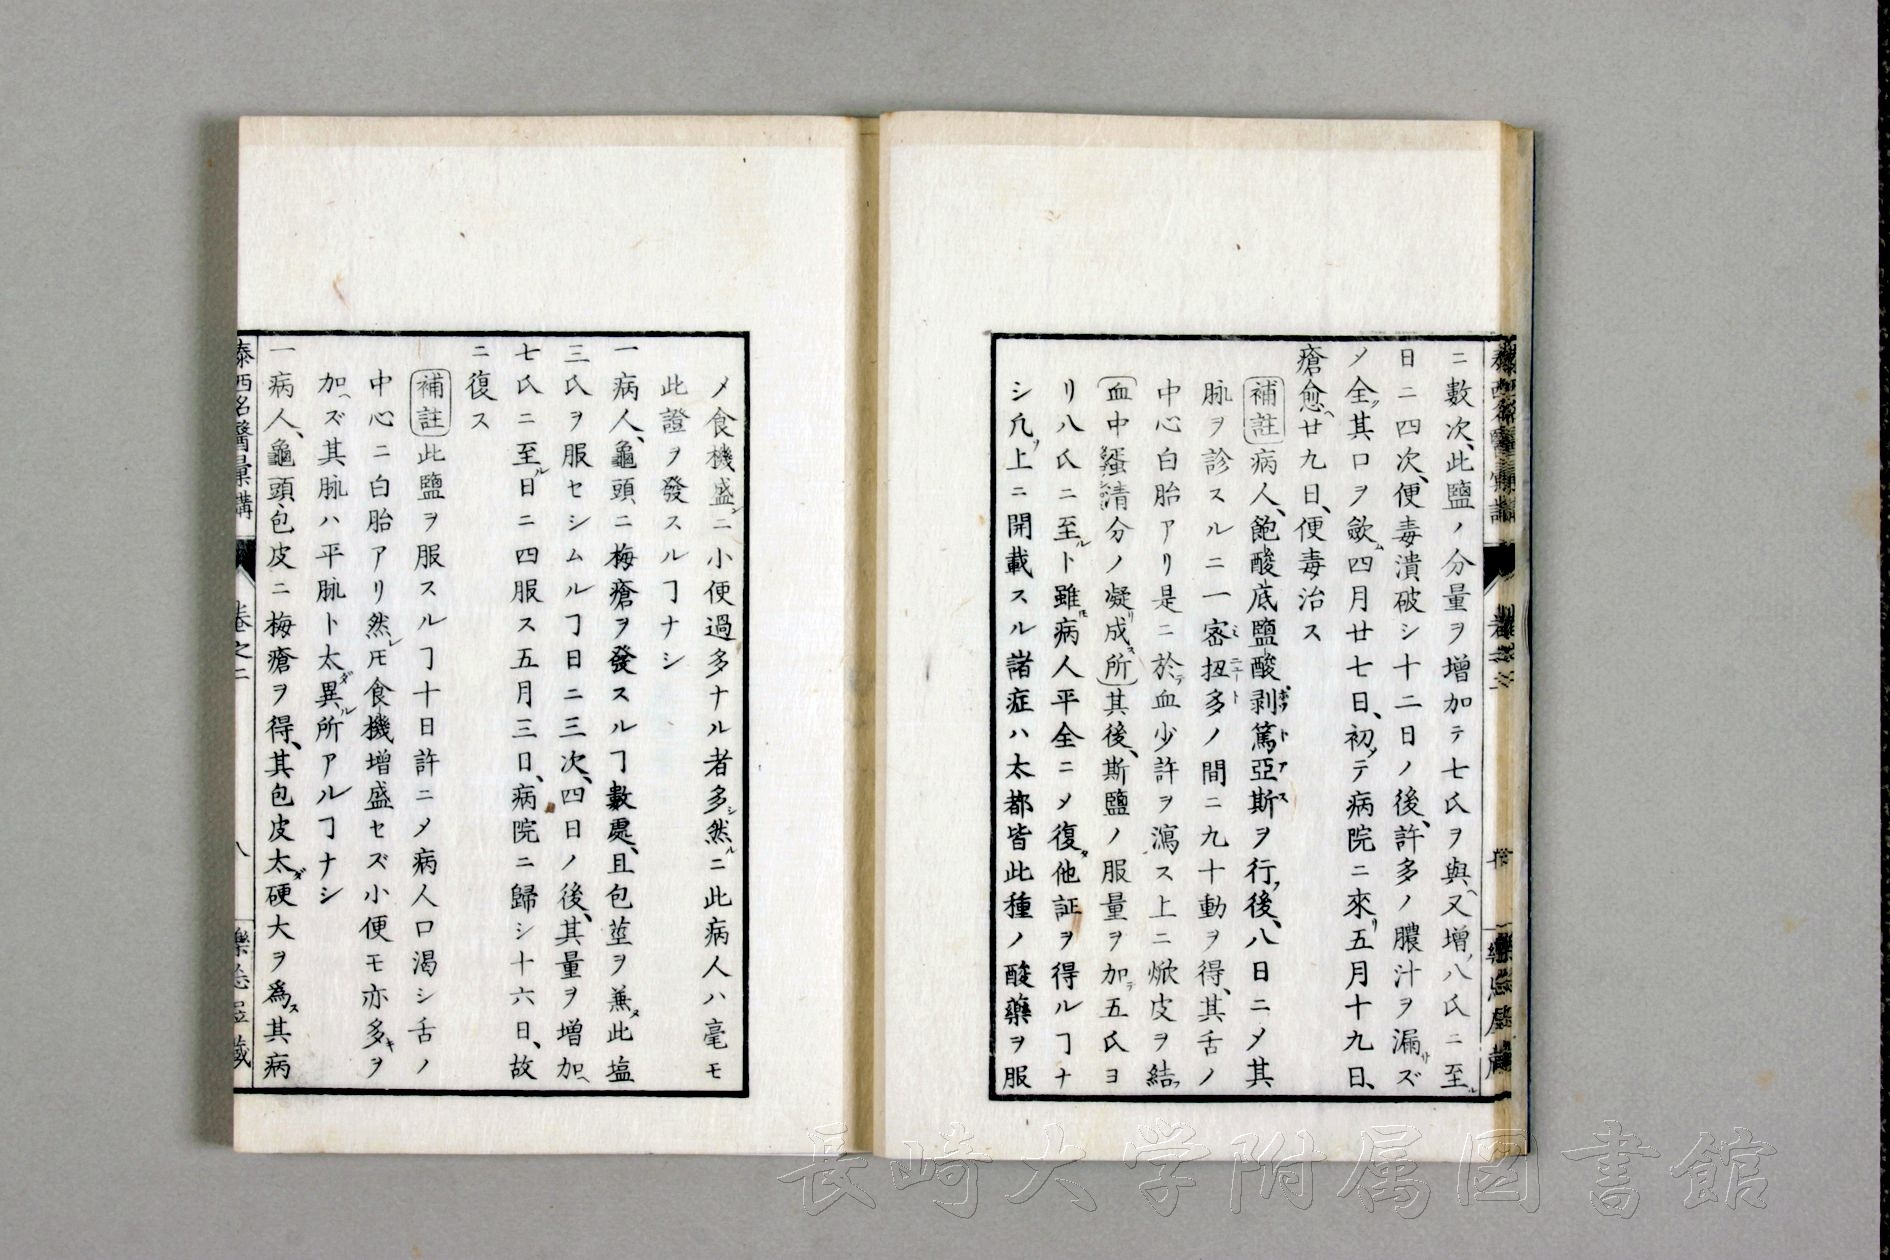 ニ數次、此鹽ノ分量ヲ增加テ七氏ヲ與ヘ又增ノ八氏ニ至ル
日ニ四次、便毒潰破シ十二日ノ後、許多ノ膿汁ヲ漏サズ
メ全ク其口ヲ歛ム四月廿七日、初メテ病院ニ來リ五月十九日、
瘡愈ヘ廿九日、便毒治ス
補註病人、飽酸底鹽酸剥篤亞斯ヲ行フ後、八日ニメ其
脉ヲ診スルニ一密扭多ノ間ニ九十動ヲ得、其舌ノ
中心白胎アリ是ニ於テ血少許ヲ瀉ス上ニ焮皮ヲ結フ
血中蛋清分ノ凝リ成ス所其後、斯鹽ノ服量ヲ加テ五氏ヨ
リ八氏ニ至ルト雖モ病人平全ニメ復タ他証ヲ得ルヿナ
シ凡ソ上ニ開載スル諸症ハ太都皆此種ノ酸藥ヲ服
メ食機盛ンニ小便過多ナル者多シ然ルニ此病人ハ毫モ
此證ヲ發スルヿナシ
一病人、龜頭ニ梅瘡ヲ發スルヿ數處、且包莖ヲ兼ヌ此塩
三氏ヲ服セシムルヿ日ニ三次、四日ノ後、其量ヲ增加ヘ
七氏ニ至ル日ニ四服ス五月三日、病院ニ歸シ十六日、故
ニ復ス
補註此鹽ヲ服スルヿ十日許ニメ病人口渴シ舌ノ
中心ニ白胎アリ然レ𪜈食機增盛セズ小便モ亦多キヲ
加ヘズ其脉ハ平脉ト太ダ異ル所アルヿナシ
一病人、龜頭、包皮ニ梅瘡ヲ得、其包皮太ダ硬大ヲ爲ス其病
泰西名醫彙講
卷之二
八
長崎大学附属図書館